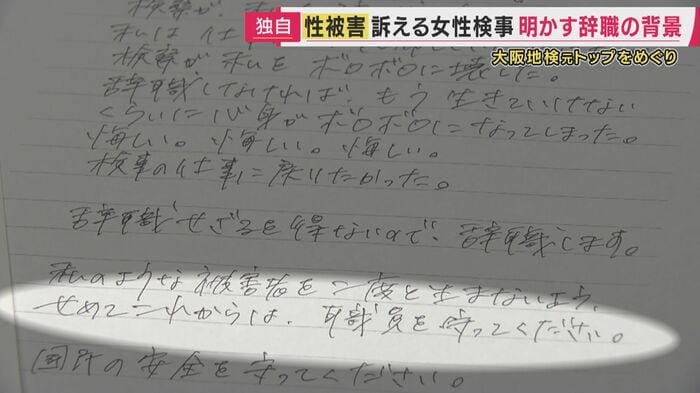 独自
性被害 訴える女性検事 明かす辞職の背景
大阪地検元トップをめぐり
検察が
私は仕
検察が私をボロボロに壊した。
辞職しなければ、もう生きていけない
くらいに心身がボロボロになってしまった。
悔しい。悔しい。悔しい。
検事の仕事に戻りたかった。
辞職せざるを得ないので、辞職します。
私のような被害者を二度と生まないよう、
せめてこれからは、職員を守ってください。
国民の安全を守ってください。